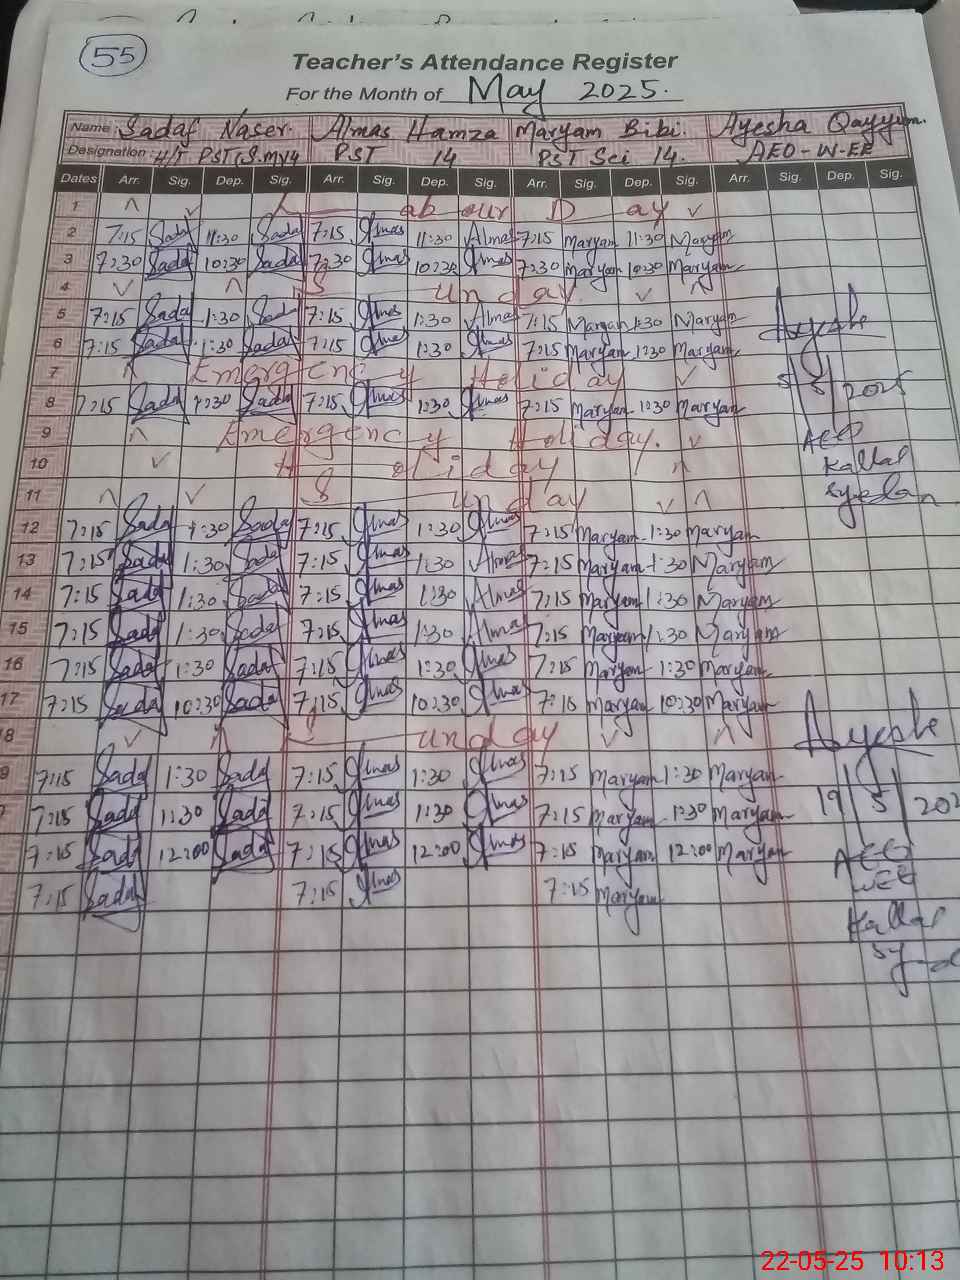 55
Teacher's Attendance Register
For the Month of May 2025.
Name: Sadaf Naser. Almas Hamza Maryam Bibi. Ayesha Qayyum.
Designation: H/T PST PST 14 PST Sci 14. AEO-W-EE
Dates Arr. Sig. Dep. Sig. Arr. Sig. Dep. Sig. Arr. Sig. Dep. Sig. Arr. Sig. Dep. Sig.
1 Labour Day
2 7:15 Sadaf 11:30 Sadaf 7:15 Almas 11:30 Almas 7:15 Maryam 11:30 Maryam
3 7:30 Sadaf 10:30 Sadaf 7:30 Almas 10:30 Almas 7:30 Maryam 10:30 Maryam
4 Sunday
5 7:15 Sadaf 1:30 Sadaf 7:15 Almas 1:30 Almas 7:15 Maryam 1:30 Maryam Ayesha
6 7:15 Sadaf 1:30 Sadaf 7:15 Almas 1:30 Almas 7:15 Maryam 1:30 Maryam
7 Emergency Holiday 5/5/2025
8 7:15 Sadaf 1:30 Sadaf 7:15 Almas 1:30 Almas 7:15 Maryam 1:30 Maryam
9 Emergency Holiday. AEO
10 Holiday Kallar
11 Sunday Syedan
12 7:15 Sadaf 1:30 Sadaf 7:15 Almas 1:30 Almas 7:15 Maryam 1:30 Maryam
13 7:15 Sadaf 1:30 Sadaf 7:15 Almas 1:30 Almas 7:15 Maryam 1:30 Maryam
14 7:15 Sadaf 1:30 Sadaf 7:15 Almas 1:30 Almas 7:15 Maryam 1:30 Maryam
15 7:15 Sadaf 1:30 Sadaf 7:15 Almas 1:30 Almas 7:15 Maryam 1:30 Maryam
16 7:15 Sadaf 1:30 Sadaf 7:15 Almas 1:30 Almas 7:15 Maryam 1:30 Maryam
17 7:15 Sadaf 10:30 Sadaf 7:15 Almas 10:30 Almas 7:15 Maryam 10:30 Maryam
18 Sunday Ayesha
9 7:15 Sadaf 1:30 Sadaf 7:15 Almas 1:30 Almas 7:15 Maryam 1:30 Maryam
7:15 Sadaf 1:30 Sadaf 7:15 Almas 1:30 Almas 7:15 Maryam 1:30 Maryam 19/5/202
7:15 Sadaf 12:00 Sadaf 7:15 Almas 12:00 Almas 7:15 Maryam 12:00 Maryam AEO
7:15 Sadaf 7:15 Almas 7:15 Maryam WEE
Kallar
22-05-25 10:13